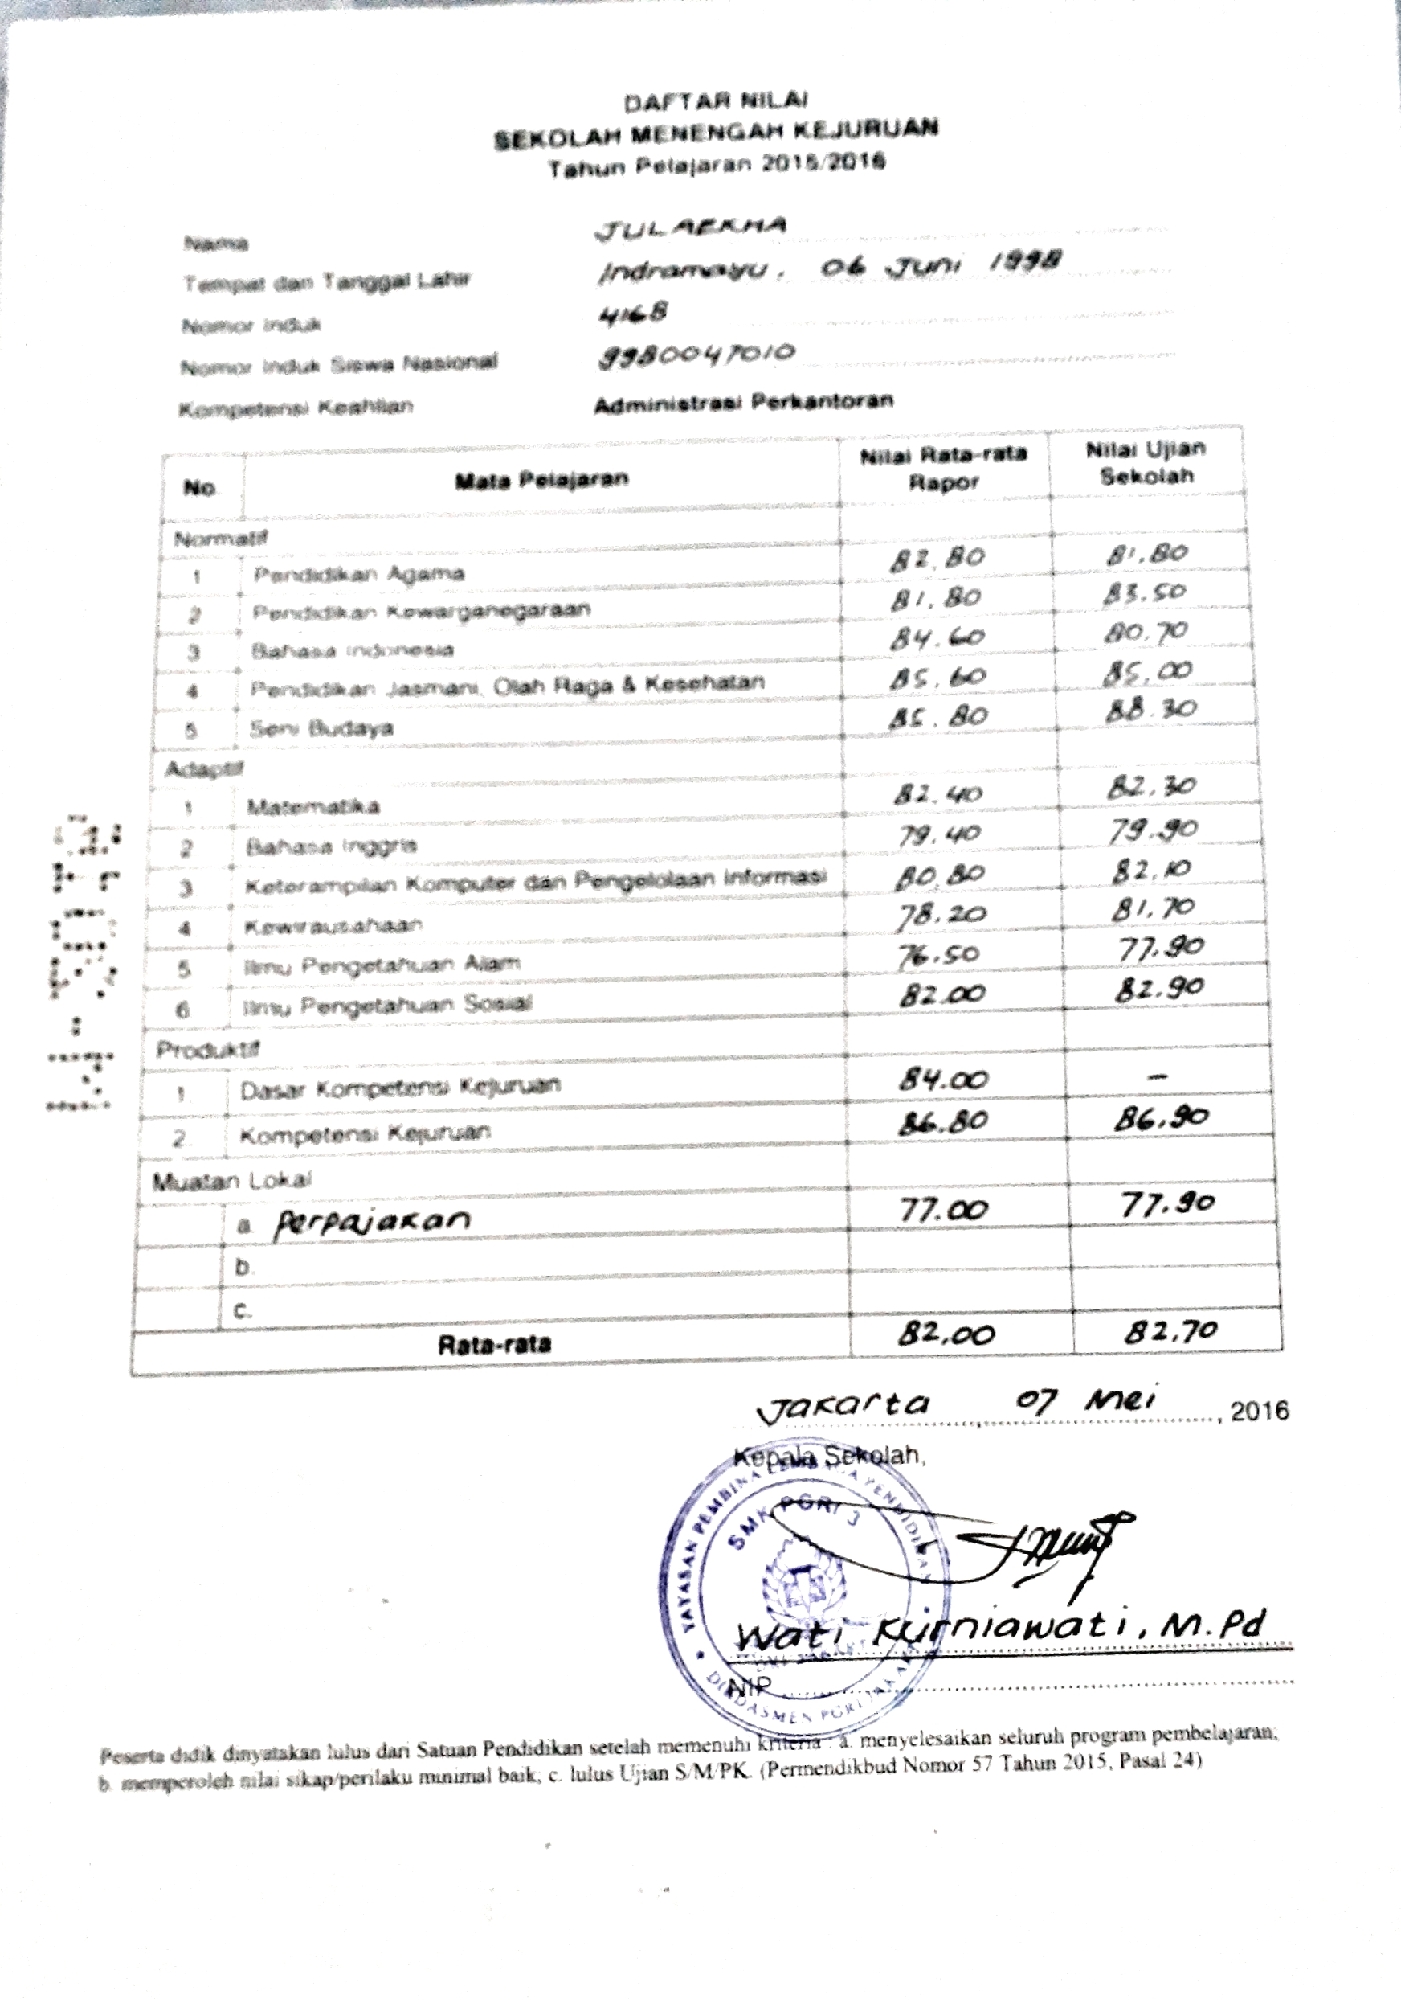 DAFTAR NILAI
SEKOLAH MENENGAH KEJURUAN
Tahun Pelajaran 2015/2016
Nama JULAEKHA
Tempat dan Tanggal Lahir Indramayu, 06 Juni 1998
Nomor Induk 4168
Nomor Induk Siswa Nasional 9980047010
Kompetensi Keahlian Administrasi Perkantoran
No. Mata Pelajaran Nilai Rata-rata Rapor Nilai Ujian Sekolah
Normatif
1 Pendidikan Agama 82.80 81.80
2 Pendidikan Kewarganegaraan 81.80 83.50
3 Bahasa Indonesia 84.60 80.70
4 Pendidikan Jasmani, Olah Raga & Kesehatan 85.60 85.00
5 Seni Budaya 85.80 88.30
Adaptif
1 Matematika 82.40 82.30
2 Bahasa Inggris 79.40 79.90
3 Keterampilan Komputer dan Pengelolaan Informasi 80.80 82.10
4 Kewirausahaan 78.20 81.70
5 Ilmu Pengetahuan Alam 76.50 77.90
6 Ilmu Pengetahuan Sosial 82.00 82.90
Produktif
1 Dasar Kompetensi Kejuruan 84.00 –
2 Kompetensi Kejuruan 86.80 86.90
Muatan Lokal
a. Perpajakan 77.00 77.90
b.
c.
Rata-rata 82.00 82.70
Jakarta, 07 Mei, 2016
Kepala Sekolah,
YAYASAN PEMBINA LEMBAGA PENDIDIKAN
SMK PGRI 3
DIKDASMEN PGRI JAKARTA
Wati Kurniawati, M.Pd
NIP
Peserta didik dinyatakan lulus dari Satuan Pendidikan setelah memenuhi kriteria : a. menyelesaikan seluruh program pembelajaran;
b. memperoleh nilai sikap/perilaku minimal baik; c. lulus Ujian S/M/PK. (Permendikbud Nomor 57 Tahun 2015, Pasal 24)